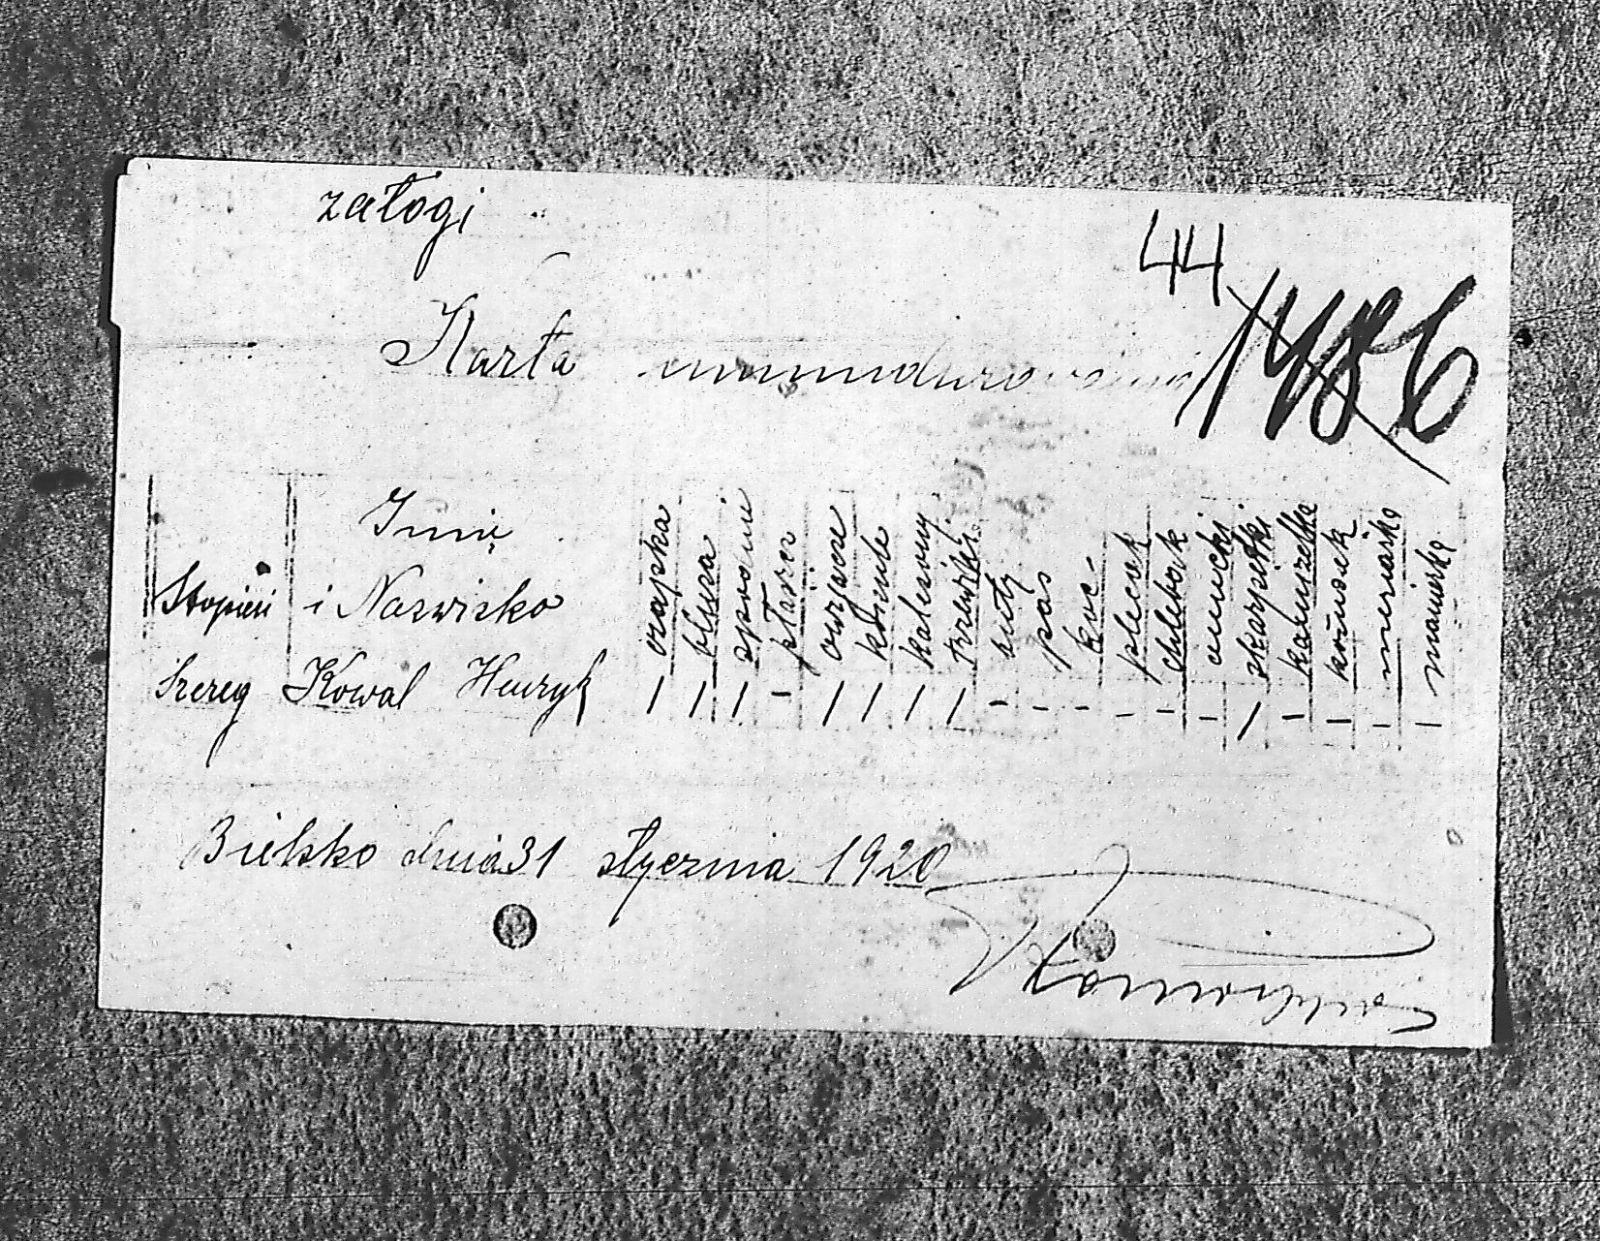 załogi
44
1486
Karta umundurowania
Imię
Stopień i Nazwisko czapka bluza spodnie płaszcz owijacze koszule kalesony trzewiki buty pas koc plecak chlebak onucki skarpetki kamizelka kożuszek menażka manierka
Szereg Kowal Henryk / / / - / / / / - - - - - - / - - - -
Bielsko dnia 31 stycznia 1920